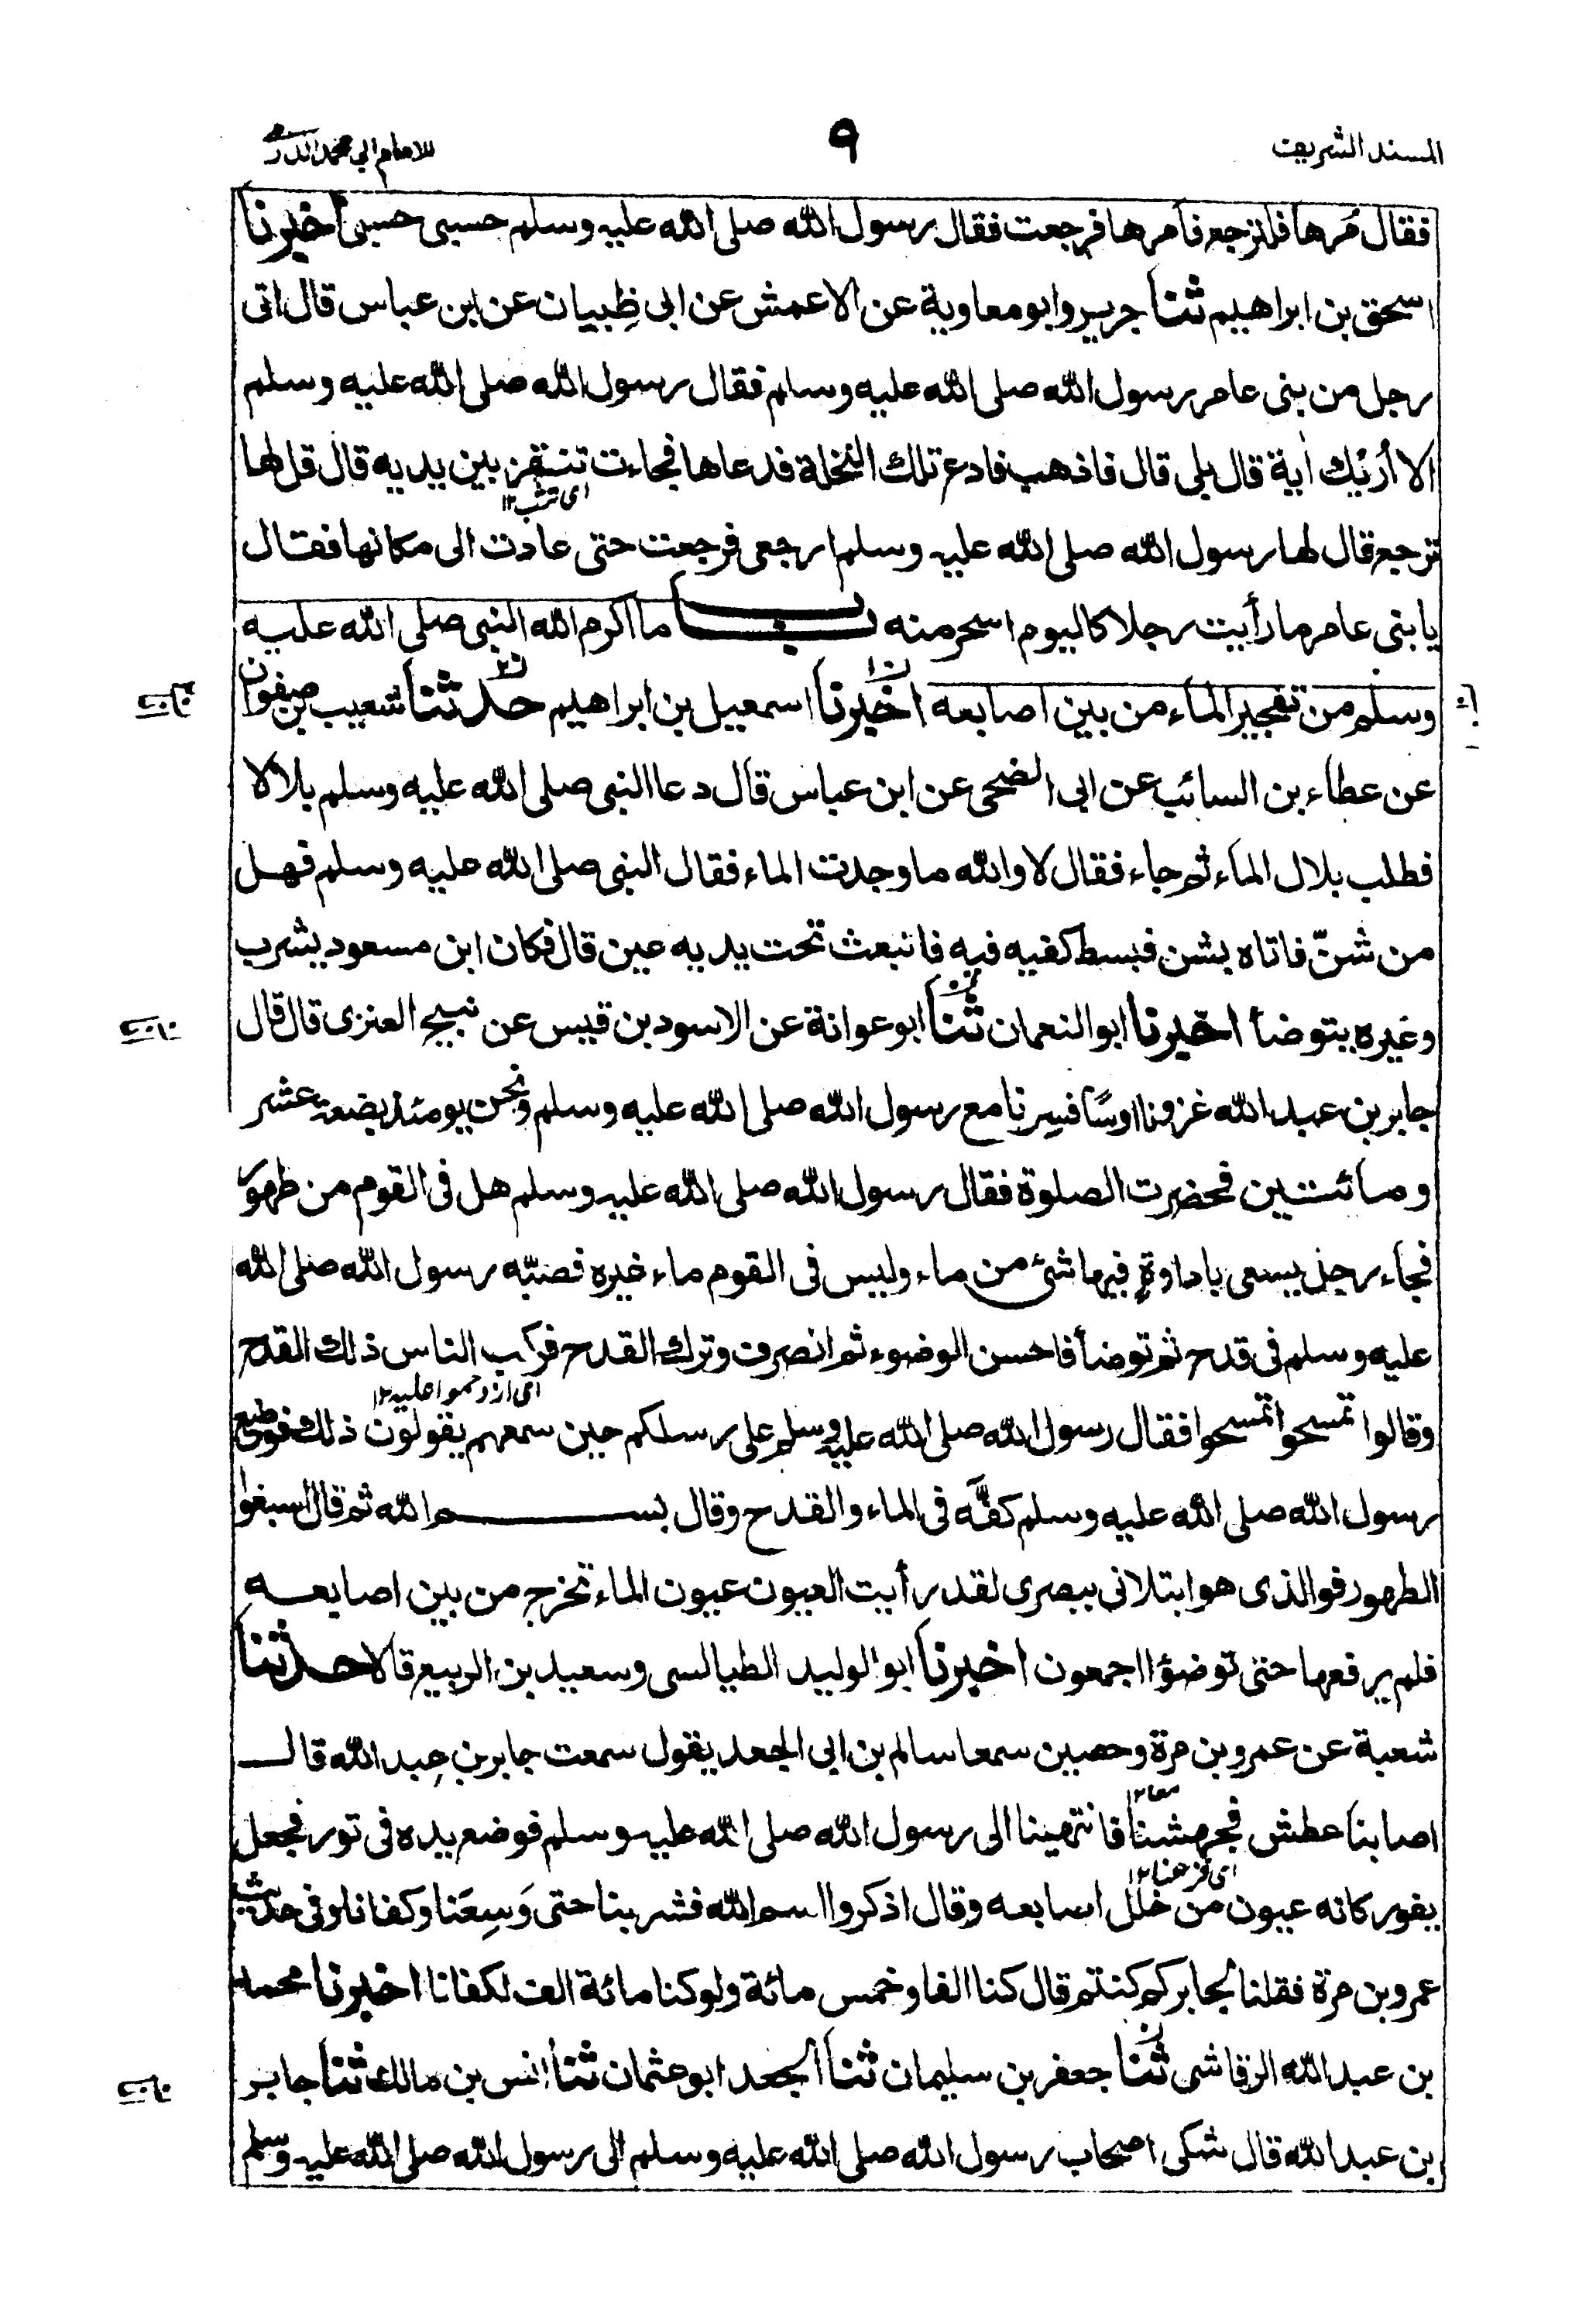 المسند الشريف
٩
للامام ابي محمد الدارمي
فقال مُرها فلترجع فأمرها فرجعت فقال رسول الله صلى الله عليه وسلم حسبى حسبى اخبرنا
اسحق بن ابراهيم ثنا جرير وابو معاوية عن الاعمش عن ابى ظبيان عن ابن عباس قال اتى
رجل من بنى عامر رسول الله صلى الله عليه وسلم فقال رسول الله صلى الله عليه وسلم
الا أريك أية قال بلى قال فاذهب فادع تلك النخلة فدعاها فجاءت تنقز بين يديه قال قل لها
اى تثب ١٢
ترجع قال لها رسول الله صلى الله عليه وسلم ارجعى فرجعت حتى عادت الى مكانها فقال
يا بنى عامر ما رأيت رجلا كاليوم اسحر منه باب ما اكرم الله النبى صلى الله عليه
وسلم من تفجير الماء من بين اصابعه اخبرنا اسمعيل بن ابراهيم حدثنا شعيب بن صفوان
عن عطاء بن السائب عن ابى الضحى عن ابن عباس قال دعا النبى صلى الله عليه وسلم بلالا
فطلب بلال الماء ثم جاء فقال لا والله ما وجدت الماء فقال النبى صلى الله عليه وسلم فهل
من شنّ فاتاه بشن فبسط كفيه فيه فانبعث تحت يديه عين قال فكان ابن مسعود يشرب
وغيره يتوضأ اخبرنا ابو النعمان ثنا ابو عوانة عن الاسود بن قيس عن نبيح العنزى قال قال
جابر بن عبد الله غزونا اوسًا فسِرنا مع رسول الله صلى الله عليه وسلم ونحن يومئذ بضعة عشر
ومائتين فحضرت الصلوة فقال رسول الله صلى الله عليه وسلم هل فى القوم من طهور
فجاء رجل يسعى باداوةٍ فيها شئ من ماء وليس فى القوم ماء غيره فصبّه رسول الله صلى الله
عليه وسلم فى قدح ثم توضأ فاحسن الوضوء ثم انصرف وترك القدح فركب الناس ذلك القدح
اى ازدحموا عليه ١٢
وقالوا تمسحوا تمسحوا فقال رسول الله صلى الله عليه وسلم على رسلكم حين سمعهم يقولون ذلك فوضع
رسول الله صلى الله عليه وسلم كفَّه فى الماء والقدح وقال بسم الله ثم قال اسبغوا
الطهور فوالذى هو ابتلانى ببصرى لقد رأيت العيون عيون الماء تخرج من بين اصابعه
فلم يرفعها حتى توضؤا اجمعون اخبرنا ابو الوليد الطيالسى وسعيد بن الربيع قالا حدثنا
شعبة عن عمرو بن مرة وحصين سمعا سالم بن ابى الجعد يقول سمعت جابر بن عبد الله قال
معا ١٢
اصابنا عطش فجهشنا فانتهينا الى رسول الله صلى الله عليه وسلم فوضع يده فى تور فجعل
اى فزعنا ١٢
يفور كانه عيون من خلل اصابعه وقال اذكروا اسم الله فشربنا حتى وَسِعَنا وكفانا وفى حديث
عمرو بن مرة فقلنا لجابر كم كنتم قال كنا الفا وخمس مائة ولو كنا مائة الف لكفانا اخبرنا محمد
بن عبد الله الرقاشى ثنا جعفر بن سليمان ثنا الجعد ابو عثمان ثنا انس بن مالك ثنا جابر
بن عبد الله قال شكى اصحاب رسول الله صلى الله عليه وسلم الى رسول الله صلى الله عليه وسلم